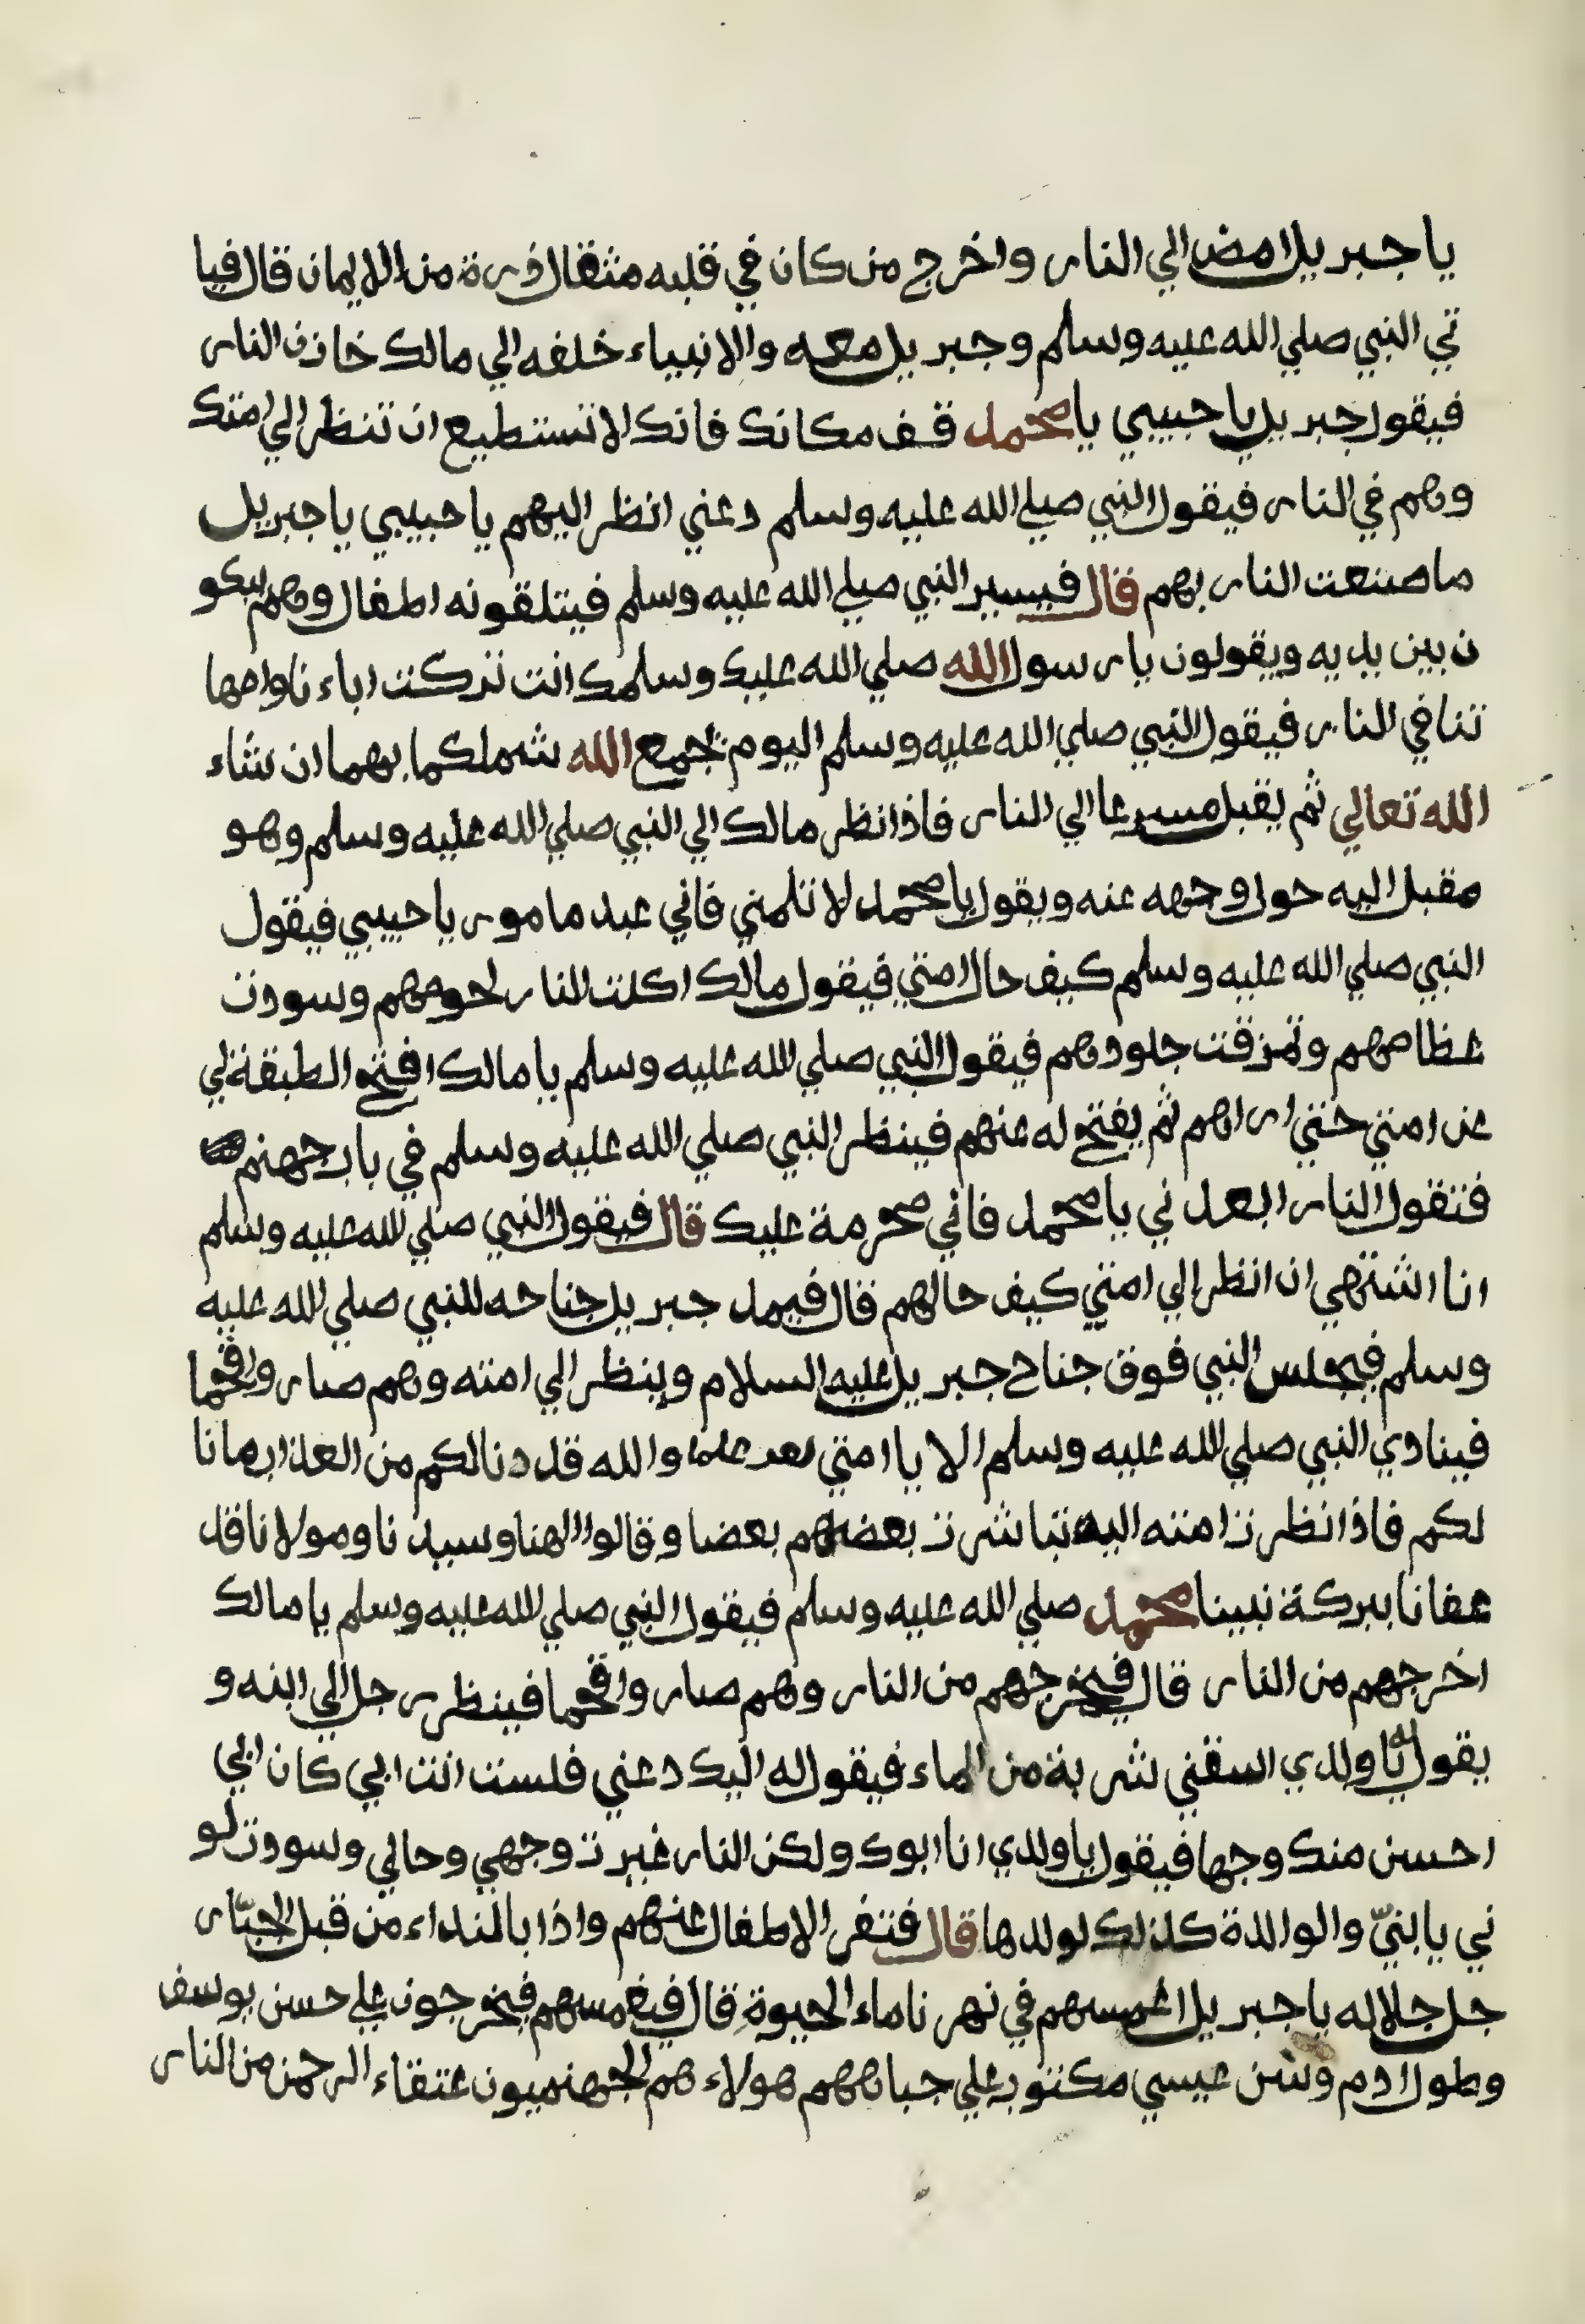 يا جبريل امض الي النار واخرج من كان في قلبه مثقال ذرة من الايمان قال فيا
تي النبي صلي الله عليه وسلم وجبريل معه والانبياء خلفه الي مالك خازن النار
فيقول جبريل يا حبيبي يا محمد قف مكانك فانك لا تستطيع ان تنظر الي امتك
وهم في النار فيقول النبي صلي الله عليه وسلم دعني انظر اليهم يا حبيبي يا جبريل
ما صنعت النار بهم قال فيسير النبي صلي الله عليه وسلم فيتلقونه اطفال وهم يبكو
ن بين يديه ويقولون يا رسول الله صلي الله عليك وسلمك انت تركت اباءنا وامها
تنا في النار فيقول النبي صلي الله عليه وسلم اليوم يجمع الله شملكما بهما ان شاء
الله تعالي ثم يقبل مسرعا الي النار فاذا نظر مالك الي النبي صلي الله عليه وسلم وهو
مقبل اليه حول وجهه عنه ويقول يا محمد لا تلمني فاني عبد مامور يا حبيبي فيقول
النبي صلي الله عليه وسلم كيف حال امتي فيقول مالك اكلت النار لحومهم وسودت
عظامهم وتمزقت جلودهم فيقول النبي صلي الله عليه وسلم يا مالك افتح الطبقة لي
عن امتي حتي اراهم ثم يفتح له عنهم فينظر النبي صلي الله عليه وسلم في باب جهنم
فتقول النار ابعد ني يا محمد فاني محرمة عليك قال فيقول النبي صلي الله عليه وسلم
انا اشتهي ان انظر الي امتي كيف حالهم قال فيمد جبريل جناحه للنبي صلي الله عليه
وسلم فيجلس النبي فوق جناح جبريل عليه السلام وينظر الي امته وهم صاروا فحما
فينادي النبي صلي الله عليه وسلم الا يا امتي والله قد دنا لكم من العذاب ما نا
لكم فاذا نظرت امته اليه تباشرت بعضهم بعضا وقالوا الهنا وسيدنا ومولانا قد
عفانا ببركة نبينا محمد صلي الله عليه وسلم فيقول النبي صلي الله عليه وسلم يا مالك
اخرجهم من النار قال فيخرجهم من النار وهم صاروا فحما فينظر رجل الي ابنه و
يقول له يا ولدي اسقني شربة من الماء فيقول له اليك دعني فلست انت ابي كان ابي
احسن منك وجها فيقول يا ولدي انا ابوك ولكن النار غيرت وجهي وحالي وسودت لو
ني يا بنيّ والوالدة كذلك لولدها قال فتفر الاطفال عنهم واذا بالنداء من قبل الجبّار
جل جلاله يا جبريل اغمسهم في نهرنا ماء الحيوة قال فيغمسهم فيخرجون علي حسن يوسف
وطول ادم وسن عيسي مكتوب علي جباههم هولاء هم الجهنميون عتقاء الرحمن من النار